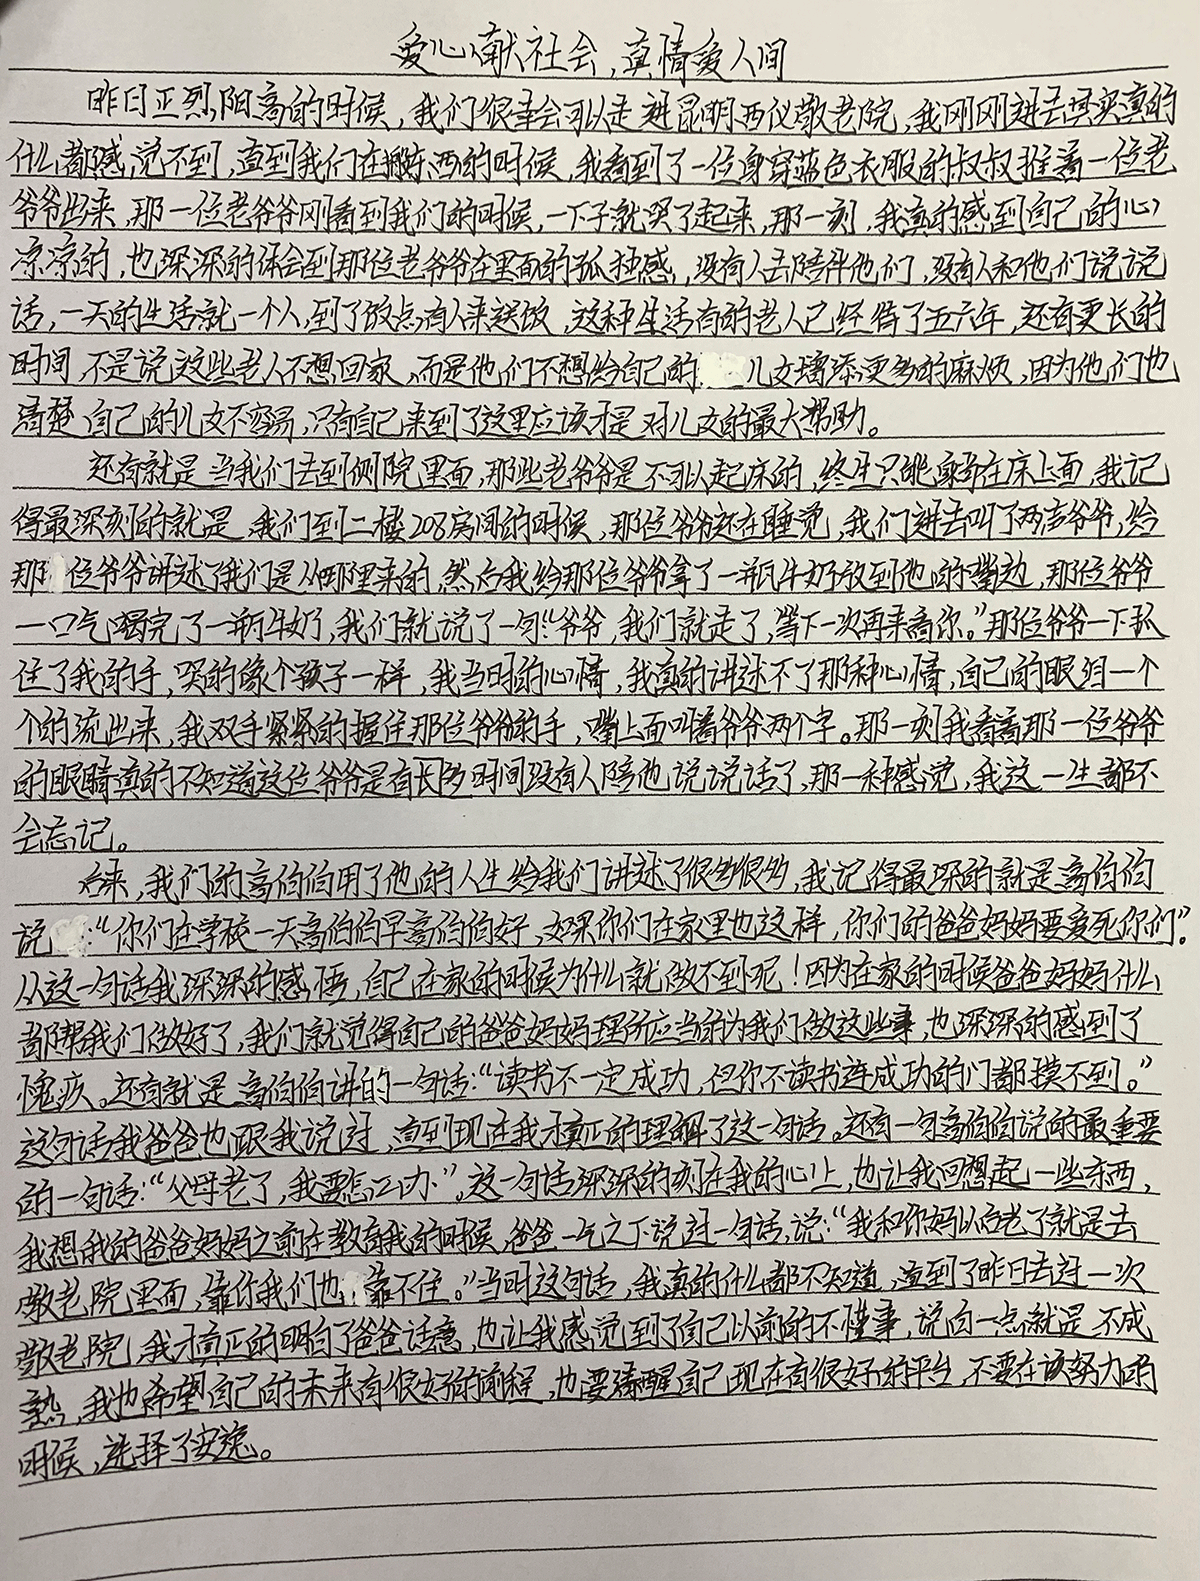 爱心献社会,真情爱人间
昨日正烈阳高的时候,我们很幸会可以走进昆明西仪敬老院,我刚刚进去其实真的
什么都感觉不到,直到我们在搬东西的时候,我看到了一位身穿蓝色衣服的叔叔推着一位老
爷爷出来,那一位老爷爷刚看到我们的时候,一下子就哭了起来,那一刻,我真的感到自己的心
凉凉的,也深深的体会到那位老爷爷在里面的孤独感,没有人去陪伴他们,没有人和他们说说
话,一天的生活就一个人,到了饭点有人来送饭,这种生活有的老人已经待了五六年,还有更长的
时间,不是说这些老人不想回家,而是他们不想给自己的儿女增添更多的麻烦,因为他们也
清楚自己的儿女不容易,只有自己来到了这里应该才是对儿女的最大帮助。
还有就是当我们去到侧院里面,那些老爷爷是不可以起床的,终生只能躺在床上面,我记
得最深刻的就是,我们到二楼208房间的时候,那位爷爷还在睡觉,我们进去叫了两声爷爷,给
那位爷爷讲述了我们是从哪里来的,然后我给那位爷爷拿了一瓶牛奶放到他的嘴边,那位爷爷
一口气喝完了一瓶牛奶,我们就说了一句:“爷爷,我们就走了,等下一次再来看你。”那位爷爷一下抓
住了我的手,哭的像个孩子一样,我当时的心情,我真的讲述不了那种心情,自己的眼泪一个
个的流出来,我双手紧紧的握住那位爷爷的手,嘴上面叫着爷爷两个字。那一刻我看着那一位爷爷
的眼睛真的不知道这位爷爷是有长多时间没有人陪他说说话了,那一种感觉,我这一生都不
会忘记。
后来,我们的高伯伯用了他的人生给我们讲述了很多很多,我记得最深的就是高伯伯
说:“你们在学校一天高伯伯早高伯伯好,如果你们在家里也这样,你们的爸爸妈妈要爱死你们”。
从这一句话我深深的感悟,自己在家的时候为什么就做不到呢!因为在家的时候爸爸妈妈什么
都帮我们做好了,我们就觉得自己的爸爸妈妈理所应当的为我们做这些事,也深深的感到了
愧疚。还有就是高伯伯讲的一句话:“读书不一定成功,但你不读书连成功的门都摸不到。”
这句话我爸爸也跟我说过,直到现在我才真正的理解了这一句话。还有一句高伯伯说的最重要
的一句话:“父母老了,我要怎么办”,这一句话深深的刻在我的心上,也让我回想起一些东西,
我想我的爸爸妈妈之前在教育我的时候,爸爸一气之下说过一句话,说:“我和你妈以后老了就是去
敬老院里面,靠你我们也靠不住。”当时这句话,我真的什么都不知道,直到了昨日去过一次
敬老院,我才真正的明白了爸爸话意,也让我感觉到了自己以前的不懂事,说白一点就是不成
熟,我也希望自己的未来有很好的前程,也要清醒自己现在有很好的平台,不要在该努力的
时候,选择了安逸。